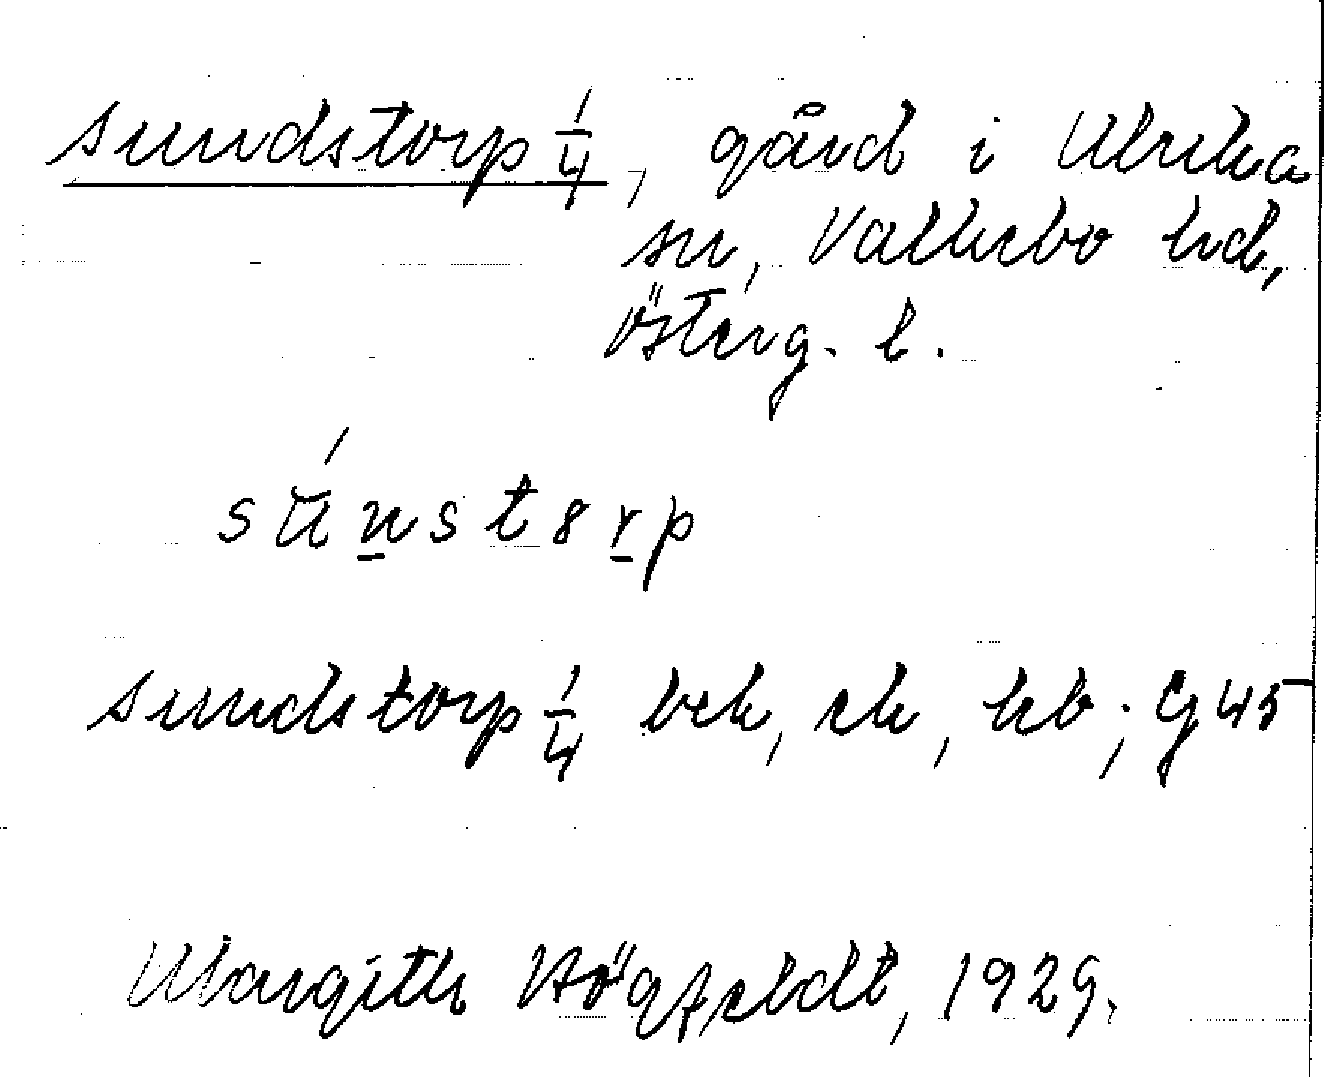 Sundstorp 1/4, gård i Ulrika
sn, Vallerbo hd,
Österg. l.
súnst8rp
Sundstorp 1/4 bek, ek, hb; G45
Margith Högfeldt, 1929.